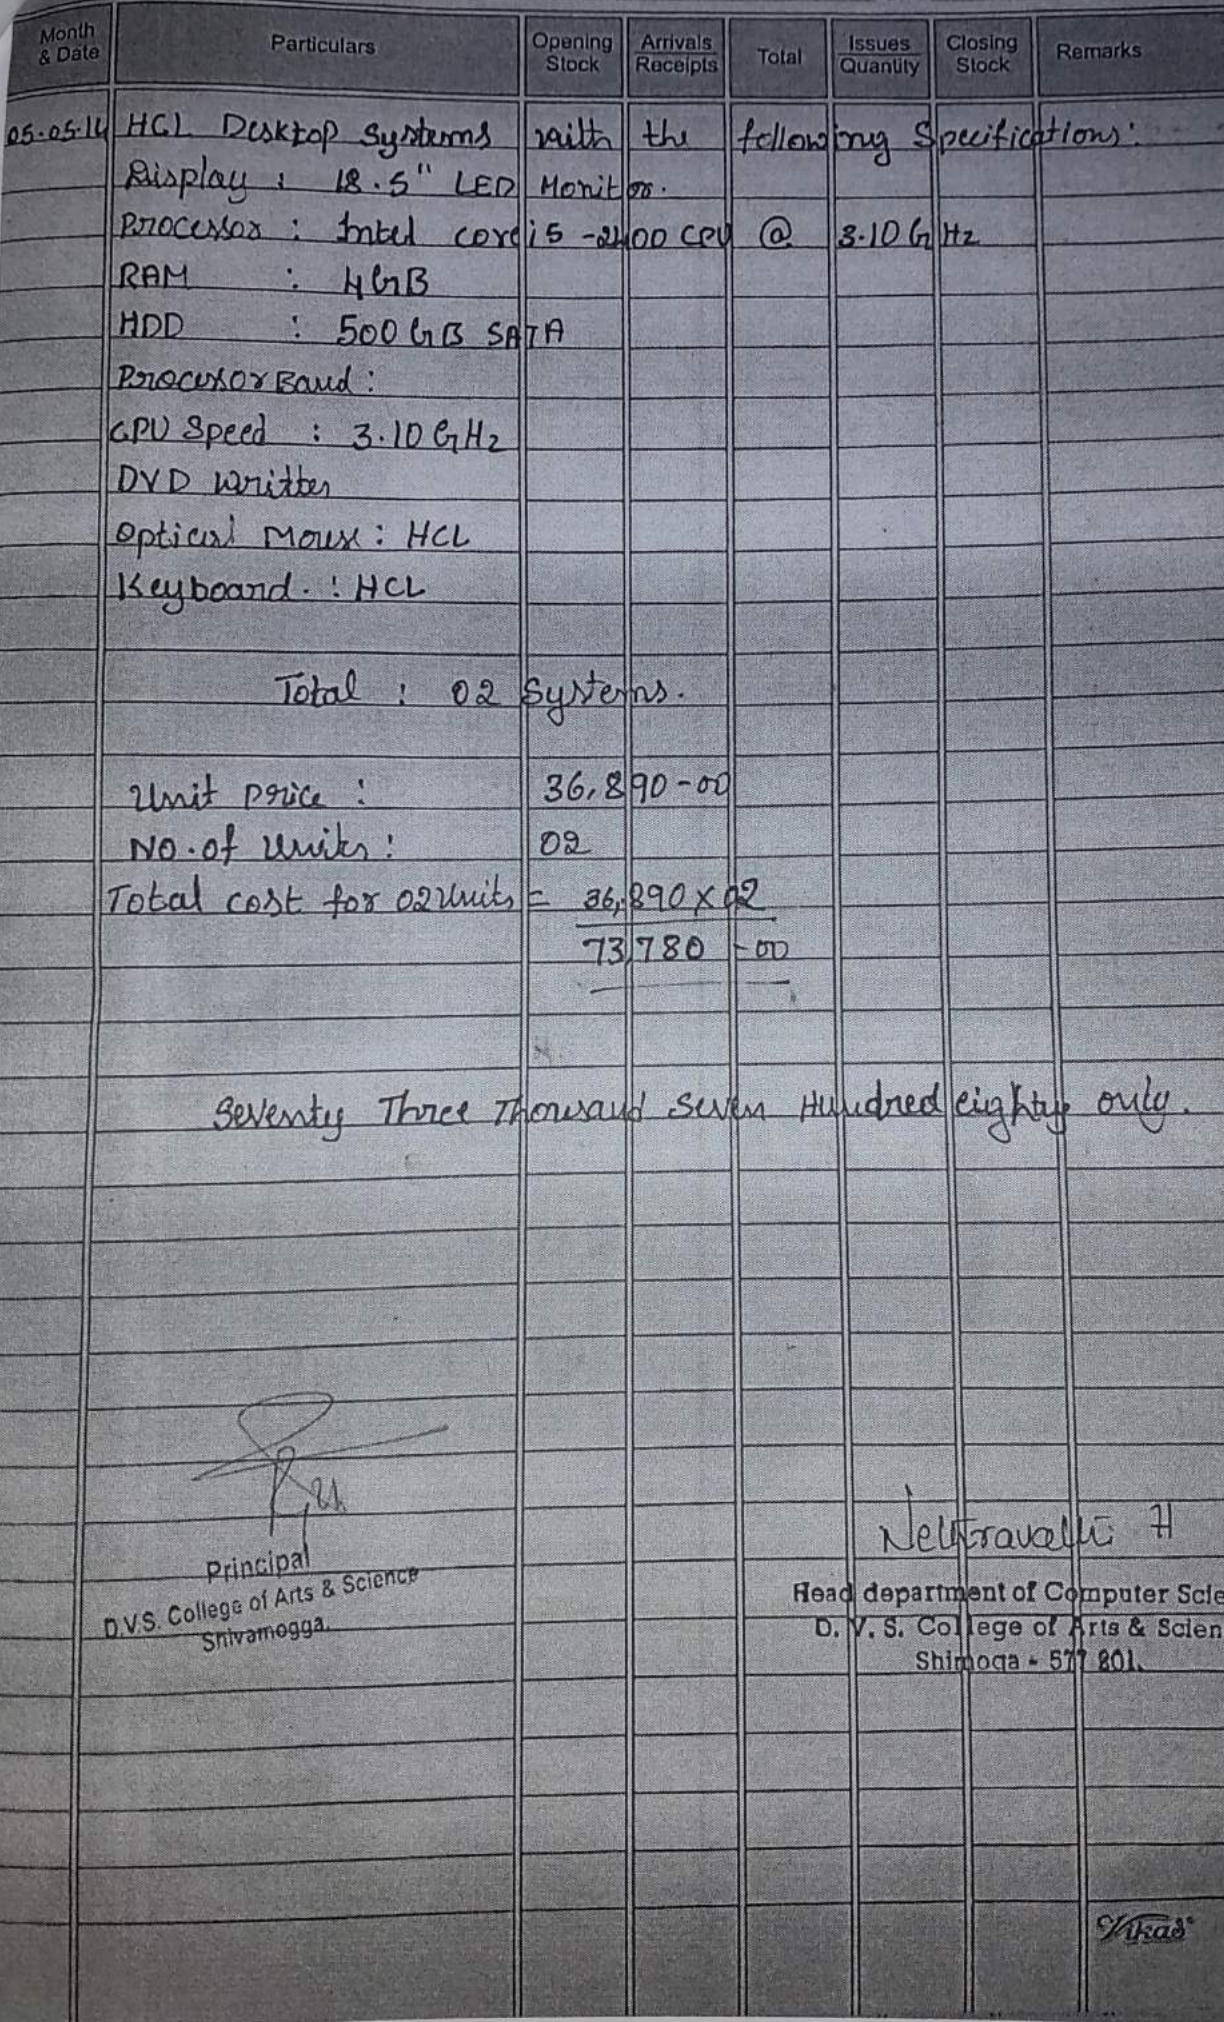 Month & Date Particulars Opening Stock Arrivals Receipts Total Issues Quantity Closing Stock Remarks
05.05.14 HCL Desktop Systems with the following Specifications:
Display : 18.5" LED Monitor.
Processor : Intel core i5 -2400 CPU @ 3.10 GHz
RAM : 4GB
HDD : 500 GB SATA
Processor Baud :
CPU Speed : 3.10 GHz
DVD writter
Optical Mouse : HCL
Keyboard. : HCL
Total : 02 Systems.
Unit price : 36,890-00
No. of Units : 02
Total cost for 02 Units = 36,890 x 02
73,780 -00
Seventy Three Thousand Seven Hundred eighty only.
Principal
D.V.S. College of Arts & Science
Shivamogga.
H
Head department of Computer Scie
D. V. S. College of Arts & Scien
Shimoga - 577 801.
Vikas